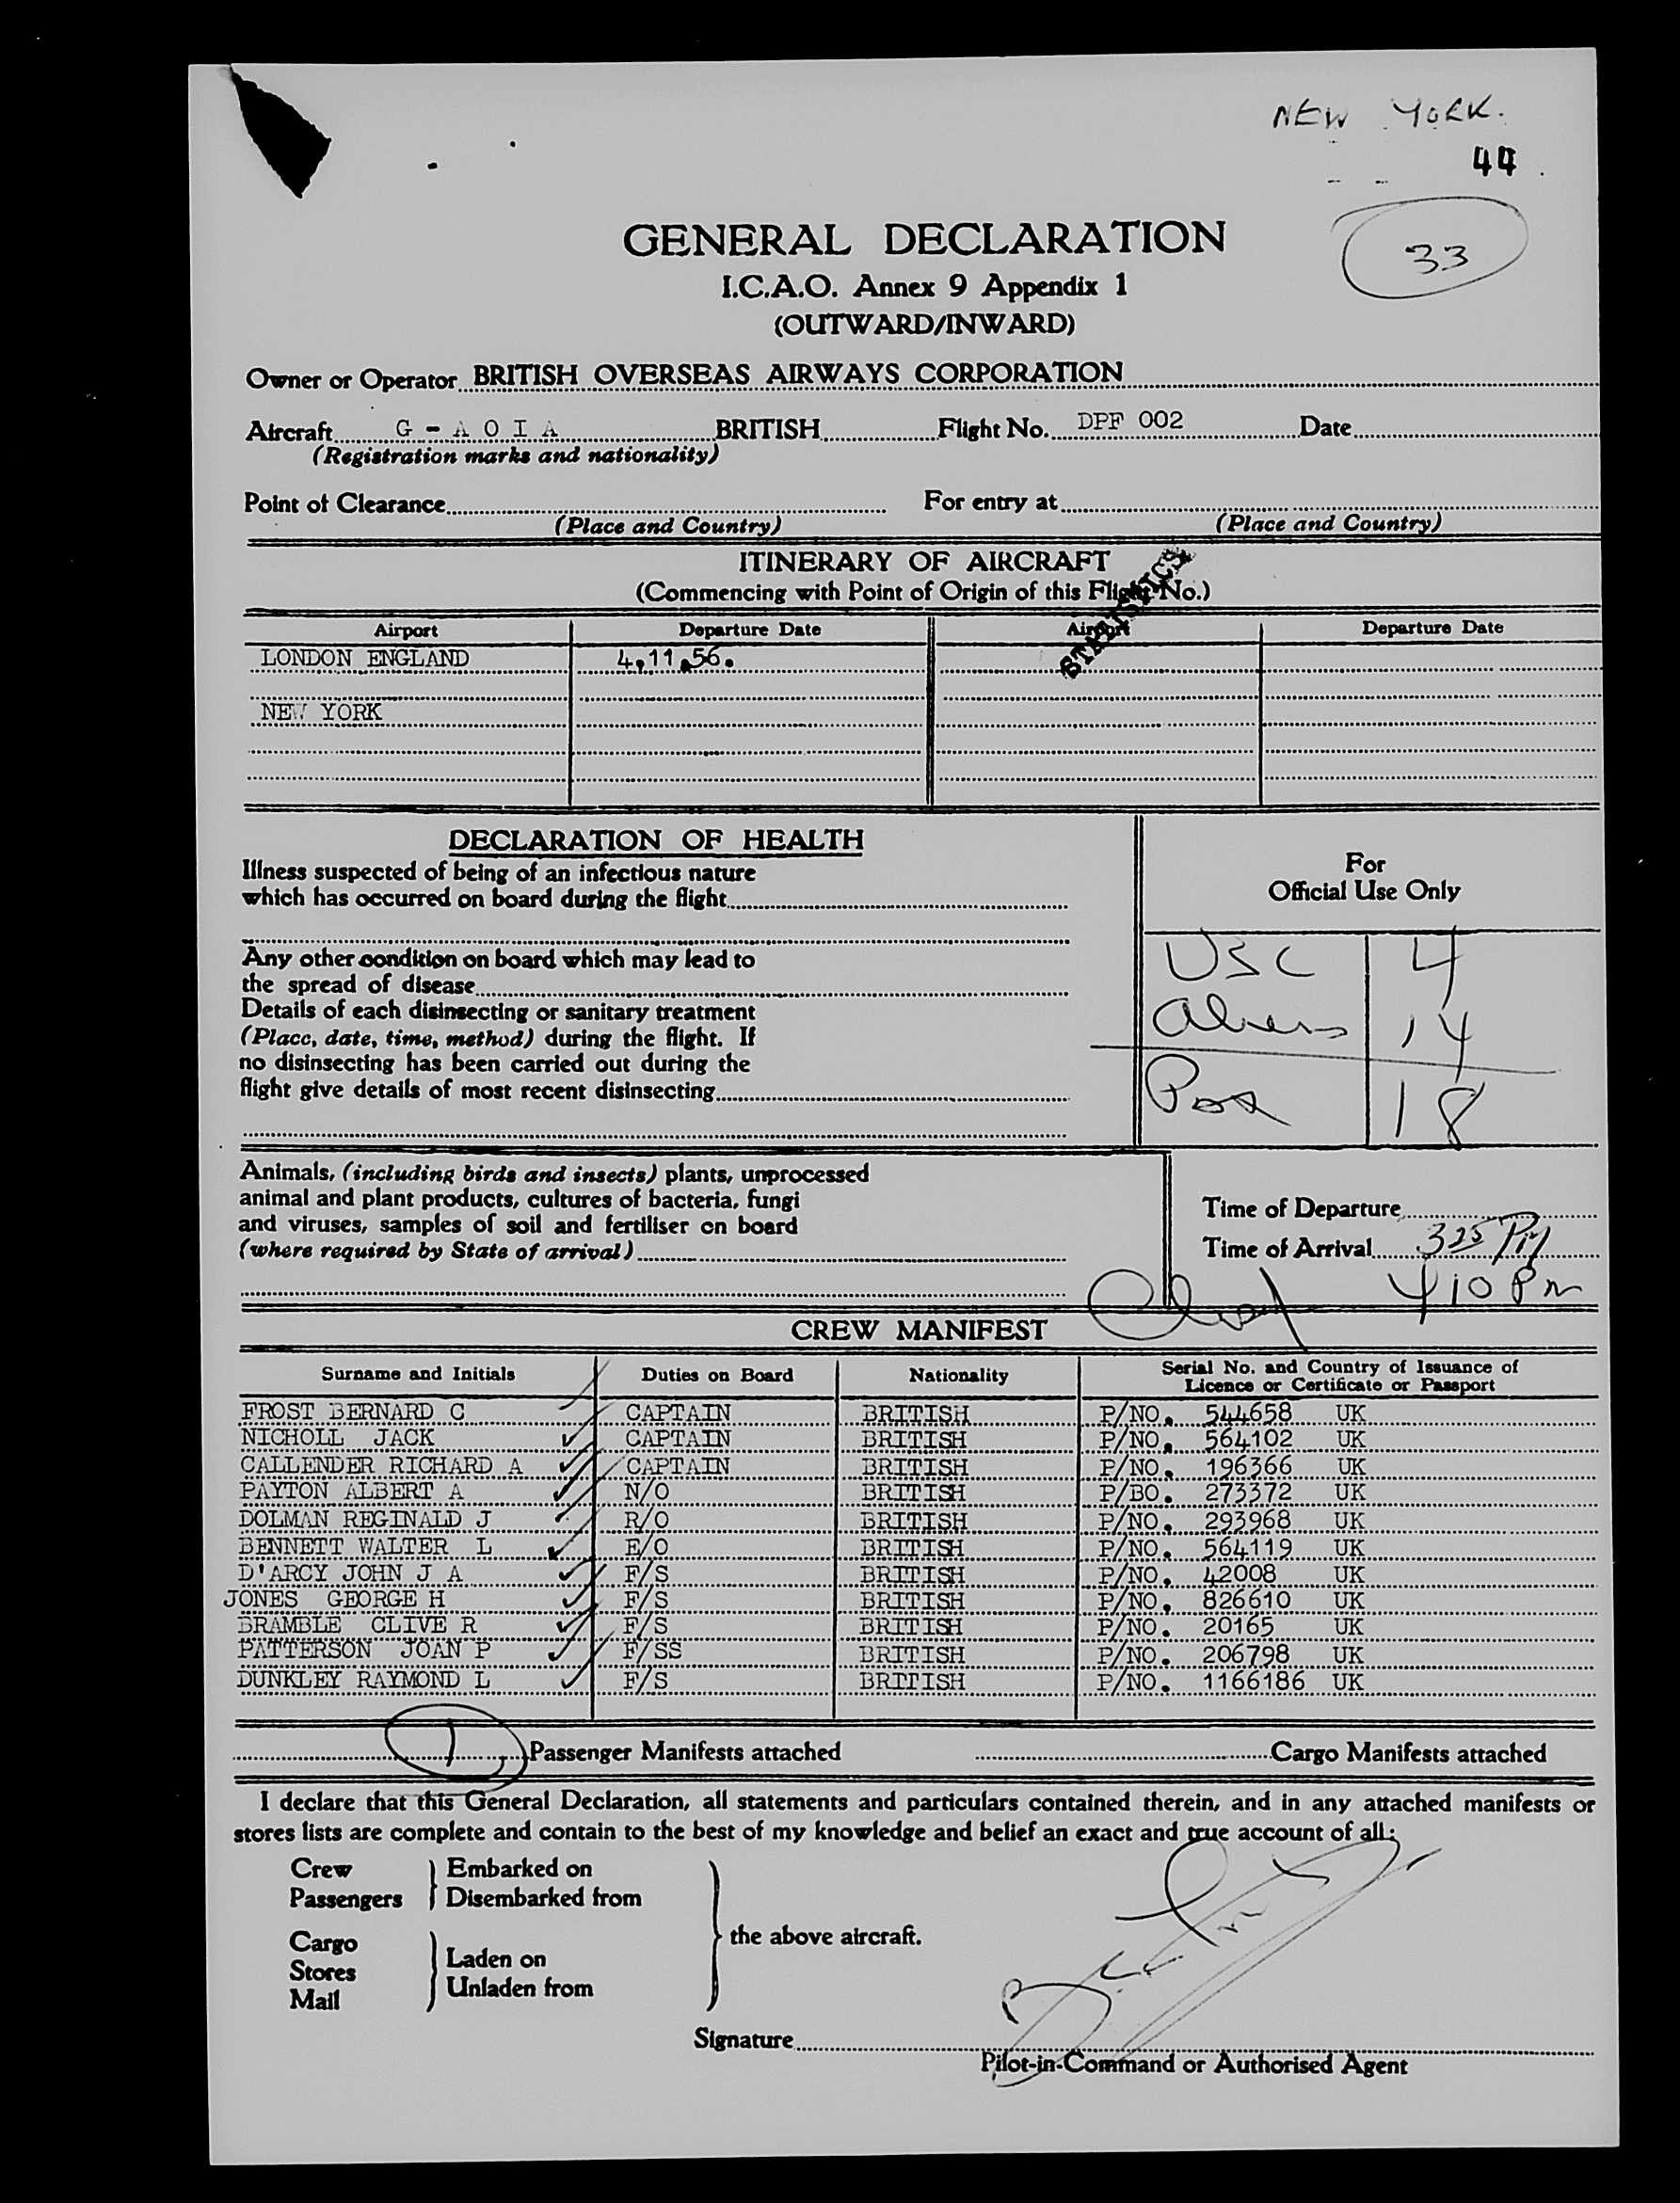 NEW YORK.
44
33
GENERAL DECLARATION
I.C.A.O. Annex 9 Appendix 1
(OUTWARD/INWARD)
Owner or Operator BRITISH OVERSEAS AIRWAYS CORPORATION
Aircraft G - A O I A BRITISH Flight No. DPF 002 Date
(Registration marks and nationality)
Point of Clearance For entry at
(Place and Country) (Place and Country)
ITINERARY OF AIRCRAFT
(Commencing with Point of Origin of this Flight No.)
STATISTICS
Airport Departure Date Airport Departure Date
LONDON ENGLAND 4.11.56.
NEW YORK
DECLARATION OF HEALTH
Illness suspected of being of an infectious nature
which has occurred on board during the flight
Any other condition on board which may lead to
the spread of disease
Details of each disinsecting or sanitary treatment
(Place, date, time, method) during the flight. If
no disinsecting has been carried out during the
flight give details of most recent disinsecting
For
Official Use Only
USC 4
Aliens 14
Pax 18
Animals, (including birds and insects) plants, unprocessed
animal and plant products, cultures of bacteria, fungi
and viruses, samples of soil and fertiliser on board
(where required by State of arrival)
Time of Departure
Time of Arrival 325 PM
410 Pm
CREW MANIFEST
Surname and Initials Duties on Board Nationality Serial No. and Country of Issuance of Licence or Certificate or Passport
FROST BERNARD C CAPTAIN BRITISH P/NO. 544658 UK
NICHOLL JACK CAPTAIN BRITISH P/NO. 564102 UK
CALLENDER RICHARD A CAPTAIN BRITISH P/NO. 196366 UK
PAYTON ALBERT A N/O BRITISH P/BO. 273372 UK
DOLMAN REGINALD J R/O BRITISH P/NO. 293968 UK
BENNETT WALTER L E/O BRITISH P/NO. 564119 UK
D'ARCY JOHN J A F/S BRITISH P/NO. 42008 UK
JONES GEORGE H F/S BRITISH P/NO. 826610 UK
BRAMBLE CLIVE R F/S BRITISH P/NO. 20165 UK
PATTERSON JOAN P F/SS BRITISH P/NO. 206798 UK
DUNKLEY RAYMOND L F/S BRITISH P/NO. 1166186 UK
1 Passenger Manifests attached Cargo Manifests attached
I declare that this General Declaration, all statements and particulars contained therein, and in any attached manifests or
stores lists are complete and contain to the best of my knowledge and belief an exact and true account of all:
Crew Embarked on
Passengers Disembarked from
the above aircraft.
Cargo
Stores Laden on
Mail Unladen from
Signature
Pilot-in-Command or Authorised Agent